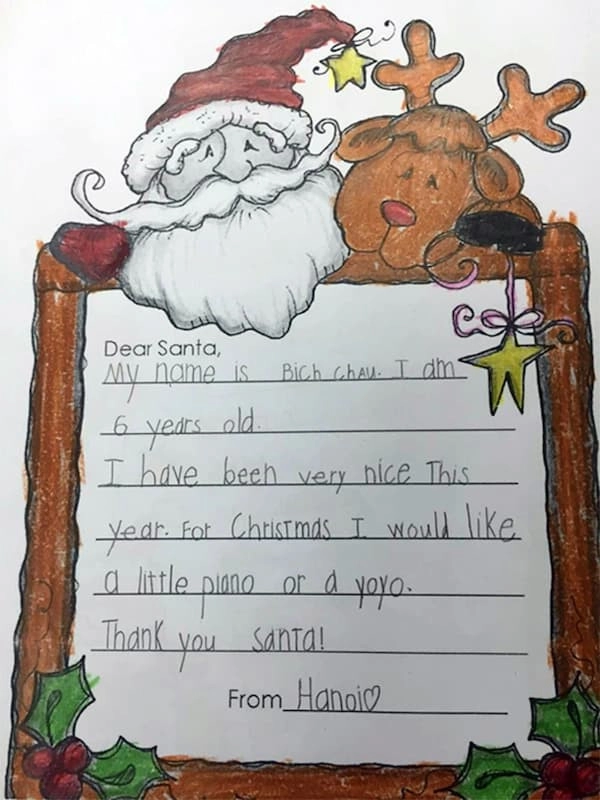 Dear Santa,
My name is Bich Chau. I am
6 years old.
I have been very nice This
year. For Christmas I would like
a little piano or a yoyo.
Thank you Santa!
From Hanoi♡